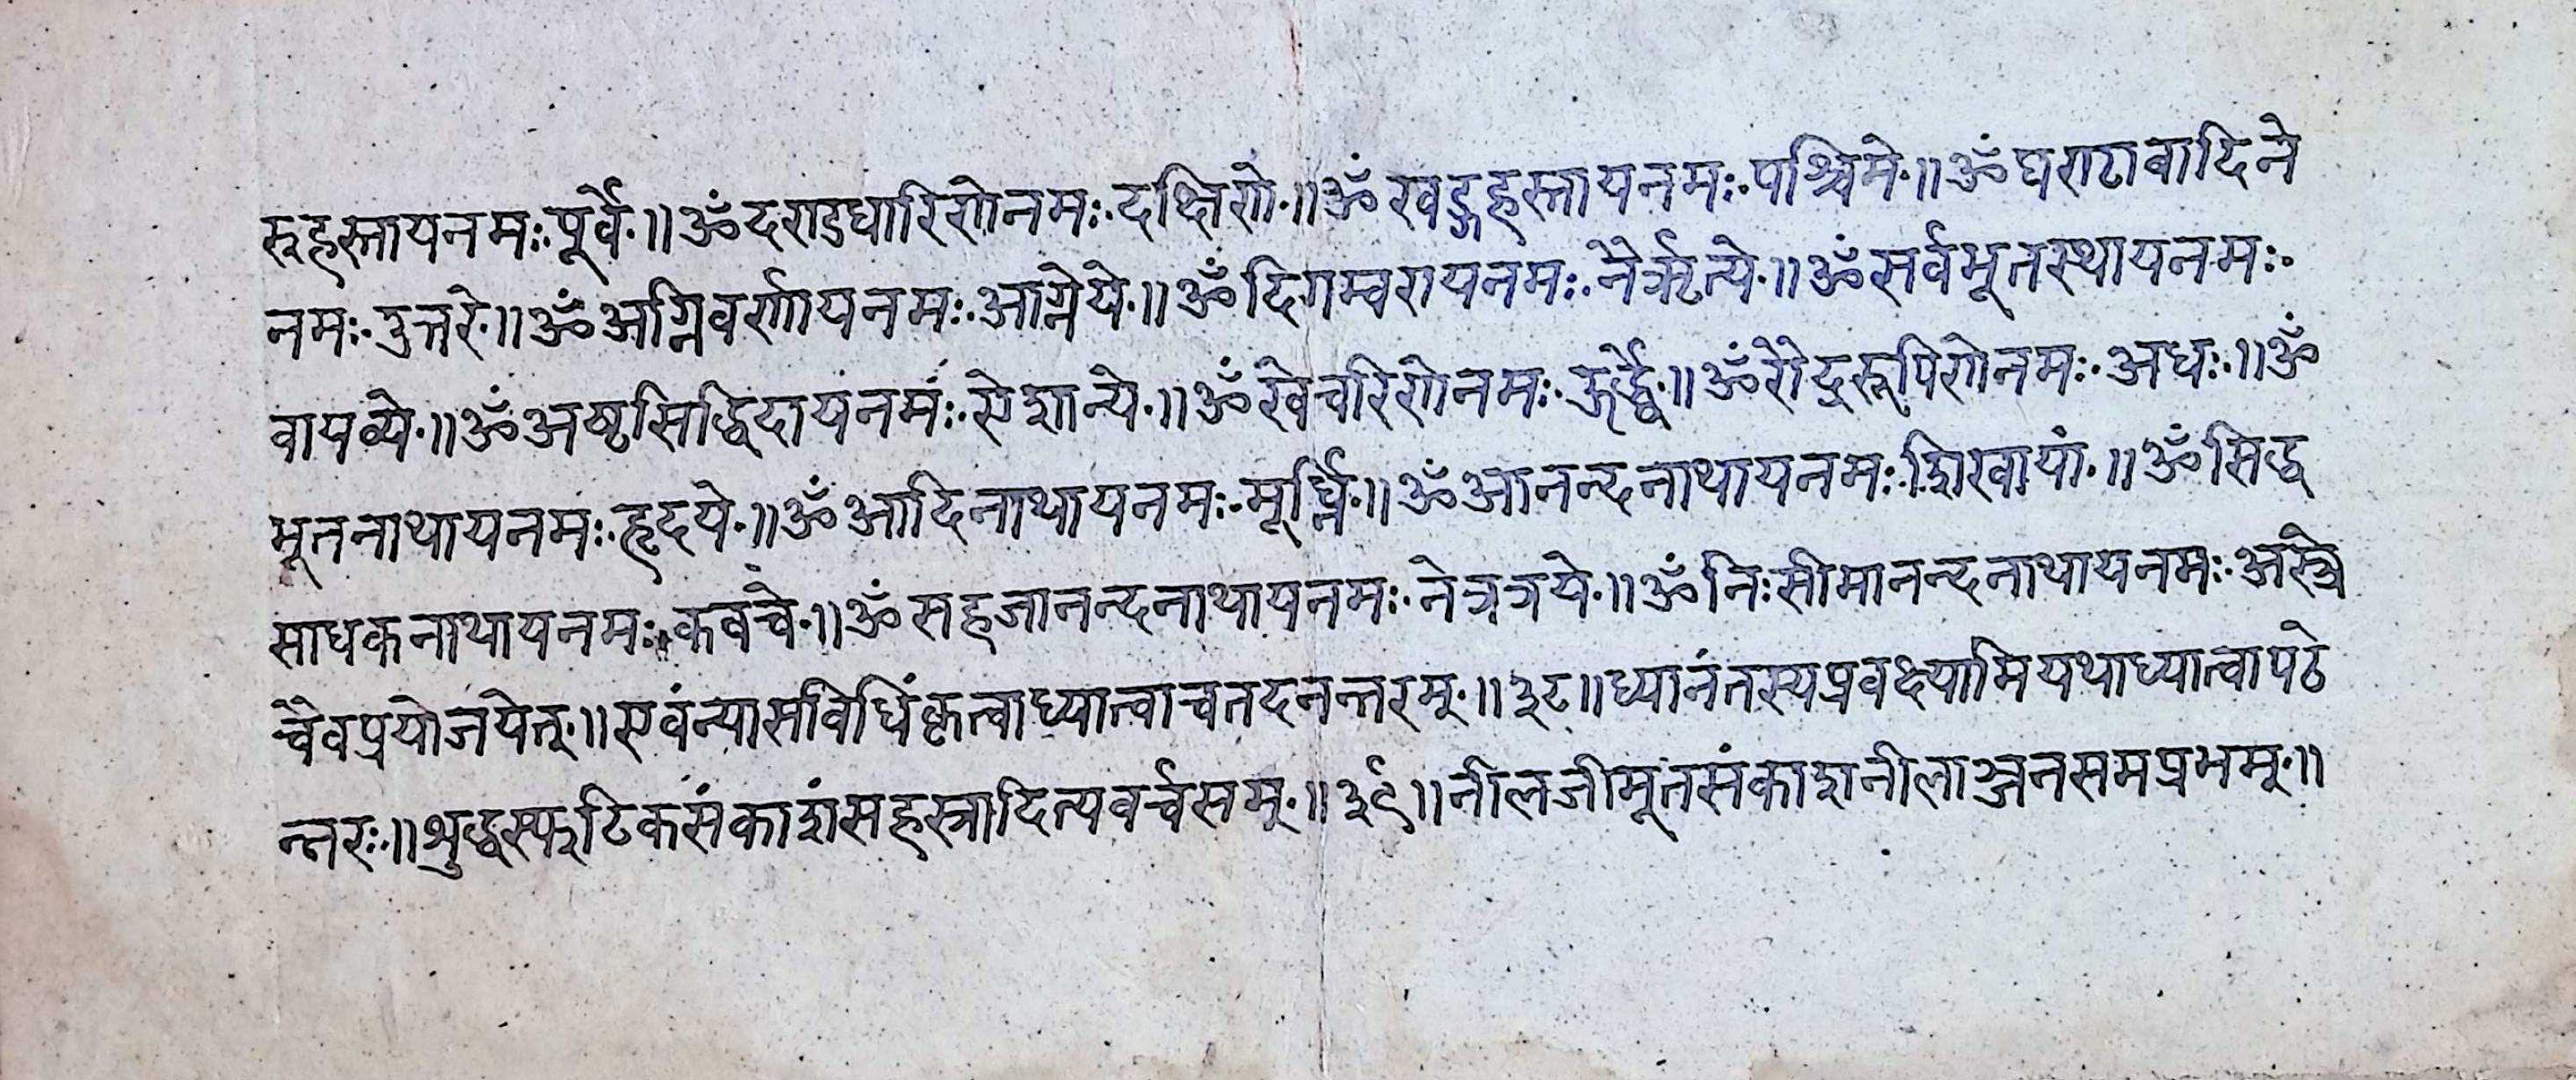 रुहस्तायनमः॰पूर्वे॰॥ॐदण्डधारिणेनमः॰दक्षिणे॰॥ॐखड्गहस्तायनमः॰पश्चिमे॰॥ॐघण्टावादिने
नमः॰उत्तरे॰॥ॐअग्निवर्णायनमः॰आग्नेये॰॥ॐदिगम्वरायनमः॰नैरृत्ये॰॥ॐसर्वभूतस्थायनमः॰
वायव्ये॰॥ॐअष्टसिद्धिदायनमः॰ऐशान्ये॰॥ॐखेचरिणेनमः॰ऊर्द्ध्वे॰॥ॐरौद्ररूपिणेनमः॰अधः॰॥ॐ
भूतनाथायनमः॰हृदये॰॥ॐआदिनाथायनमः॰मूर्ध्नि॰॥ॐआनन्दनाथायनमः॰शिखायां॰॥ॐसिद्ध
साधकनाथायनमः॰कवचे॰॥ॐसहजानन्दनाथायनमः॰नेत्रत्रये॰॥ॐनिःसीमानन्दनाथायनमः॰अस्त्रे
चैवप्रयोजयेत्॰॥एवंन्यासविधिंकृत्वाध्यात्वाचतदनन्तरम्॰॥३८॥ध्यानंतस्यप्रवक्ष्यामियथाध्यात्वापठे
न्नरः॰॥शुद्धस्फटिकसंकाशंसहस्त्रादित्यवर्चसम्॰॥३९॥नीलजीमूतसंकाशनीलाञ्जनसमप्रभम्॰॥